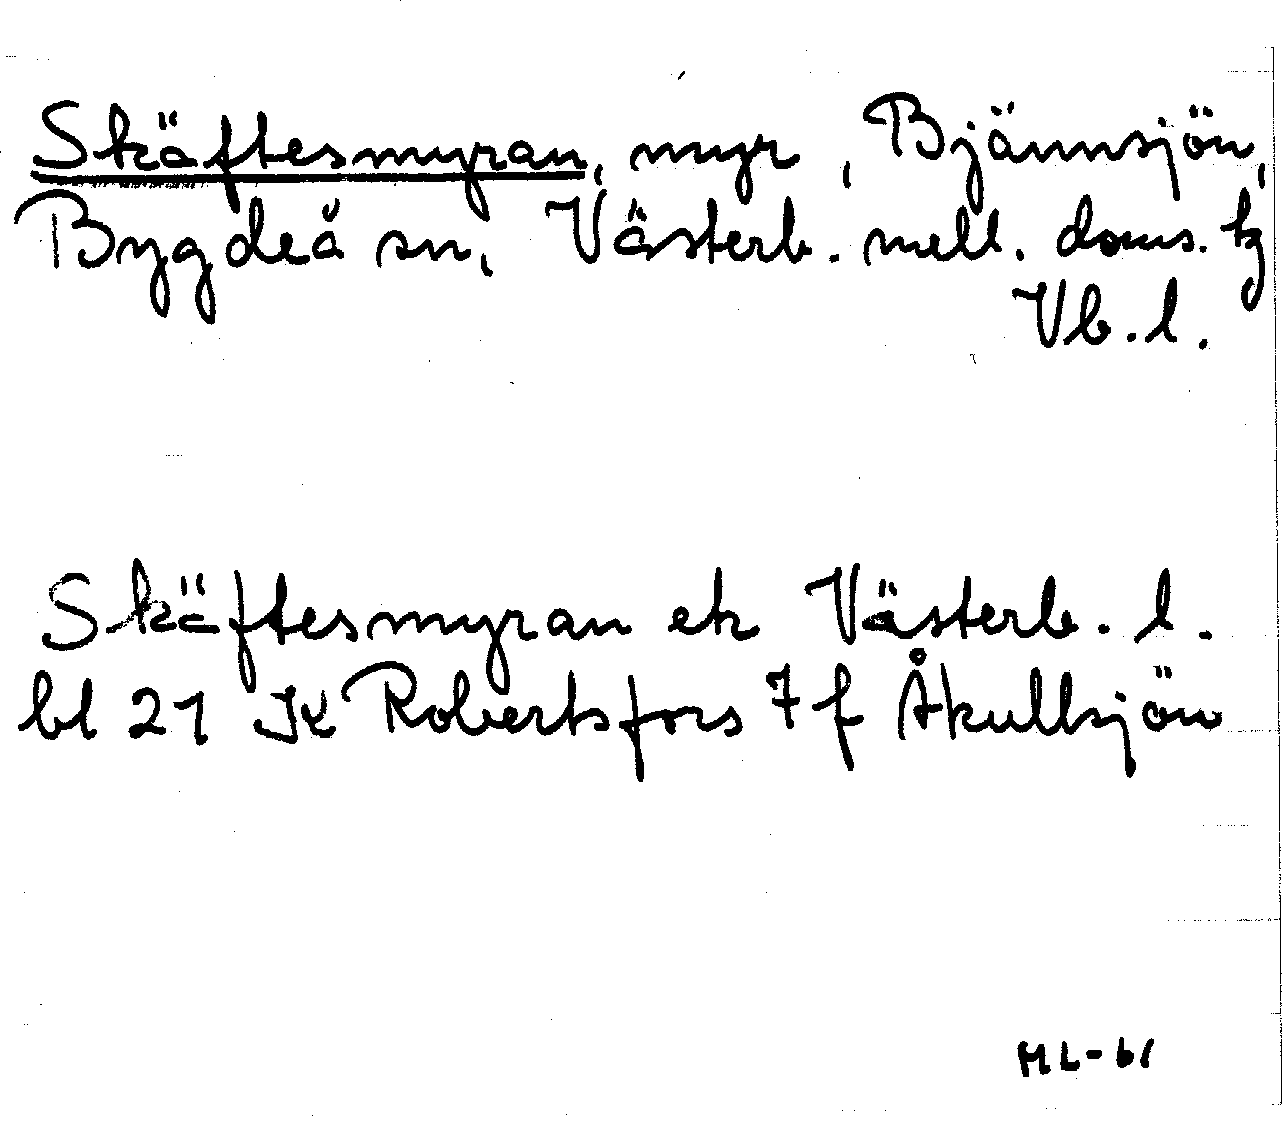 Skäftesmyran, myr, Bjännsjön,
Bygdeå sn, Västerb. mell. doms. tg
Vb. l.
Skäftesmyran ek Västerb. l.
bl 21 JK Robertsfors 7 f Åkullsjön
ML-61